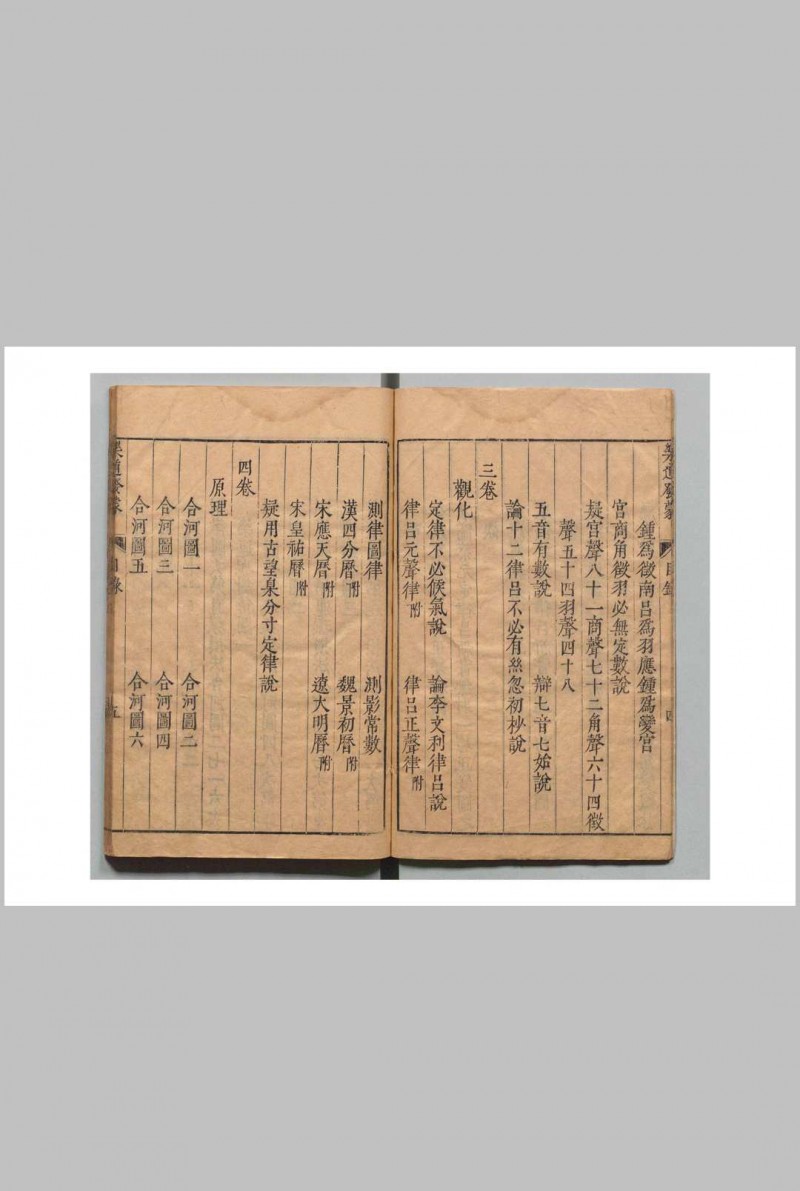 樂道發蒙 目錄 四
鍾爲徵南呂爲羽應鍾爲變宮
宮商角徵羽必無定數說
擬宮聲八十一商聲七十二角聲六十四徵
聲五十四羽聲四十八
五音有數說 辯七音七始說
論十二律呂不必有絲忽初秒說
三卷
觀化
定律不必候氣說 論李文利律呂說
律呂元聲律附 律呂正聲律附
測律圖律 測影常數
漢四分曆附 魏景初曆附
宋應天曆附 遼大明曆附
宋皇祐曆附
擬用古望臬分寸定律說
四卷
原理
合河圖一 合河圖二
合河圖三 合河圖四
合河圖五 合河圖六
道發蒙 目錄 五